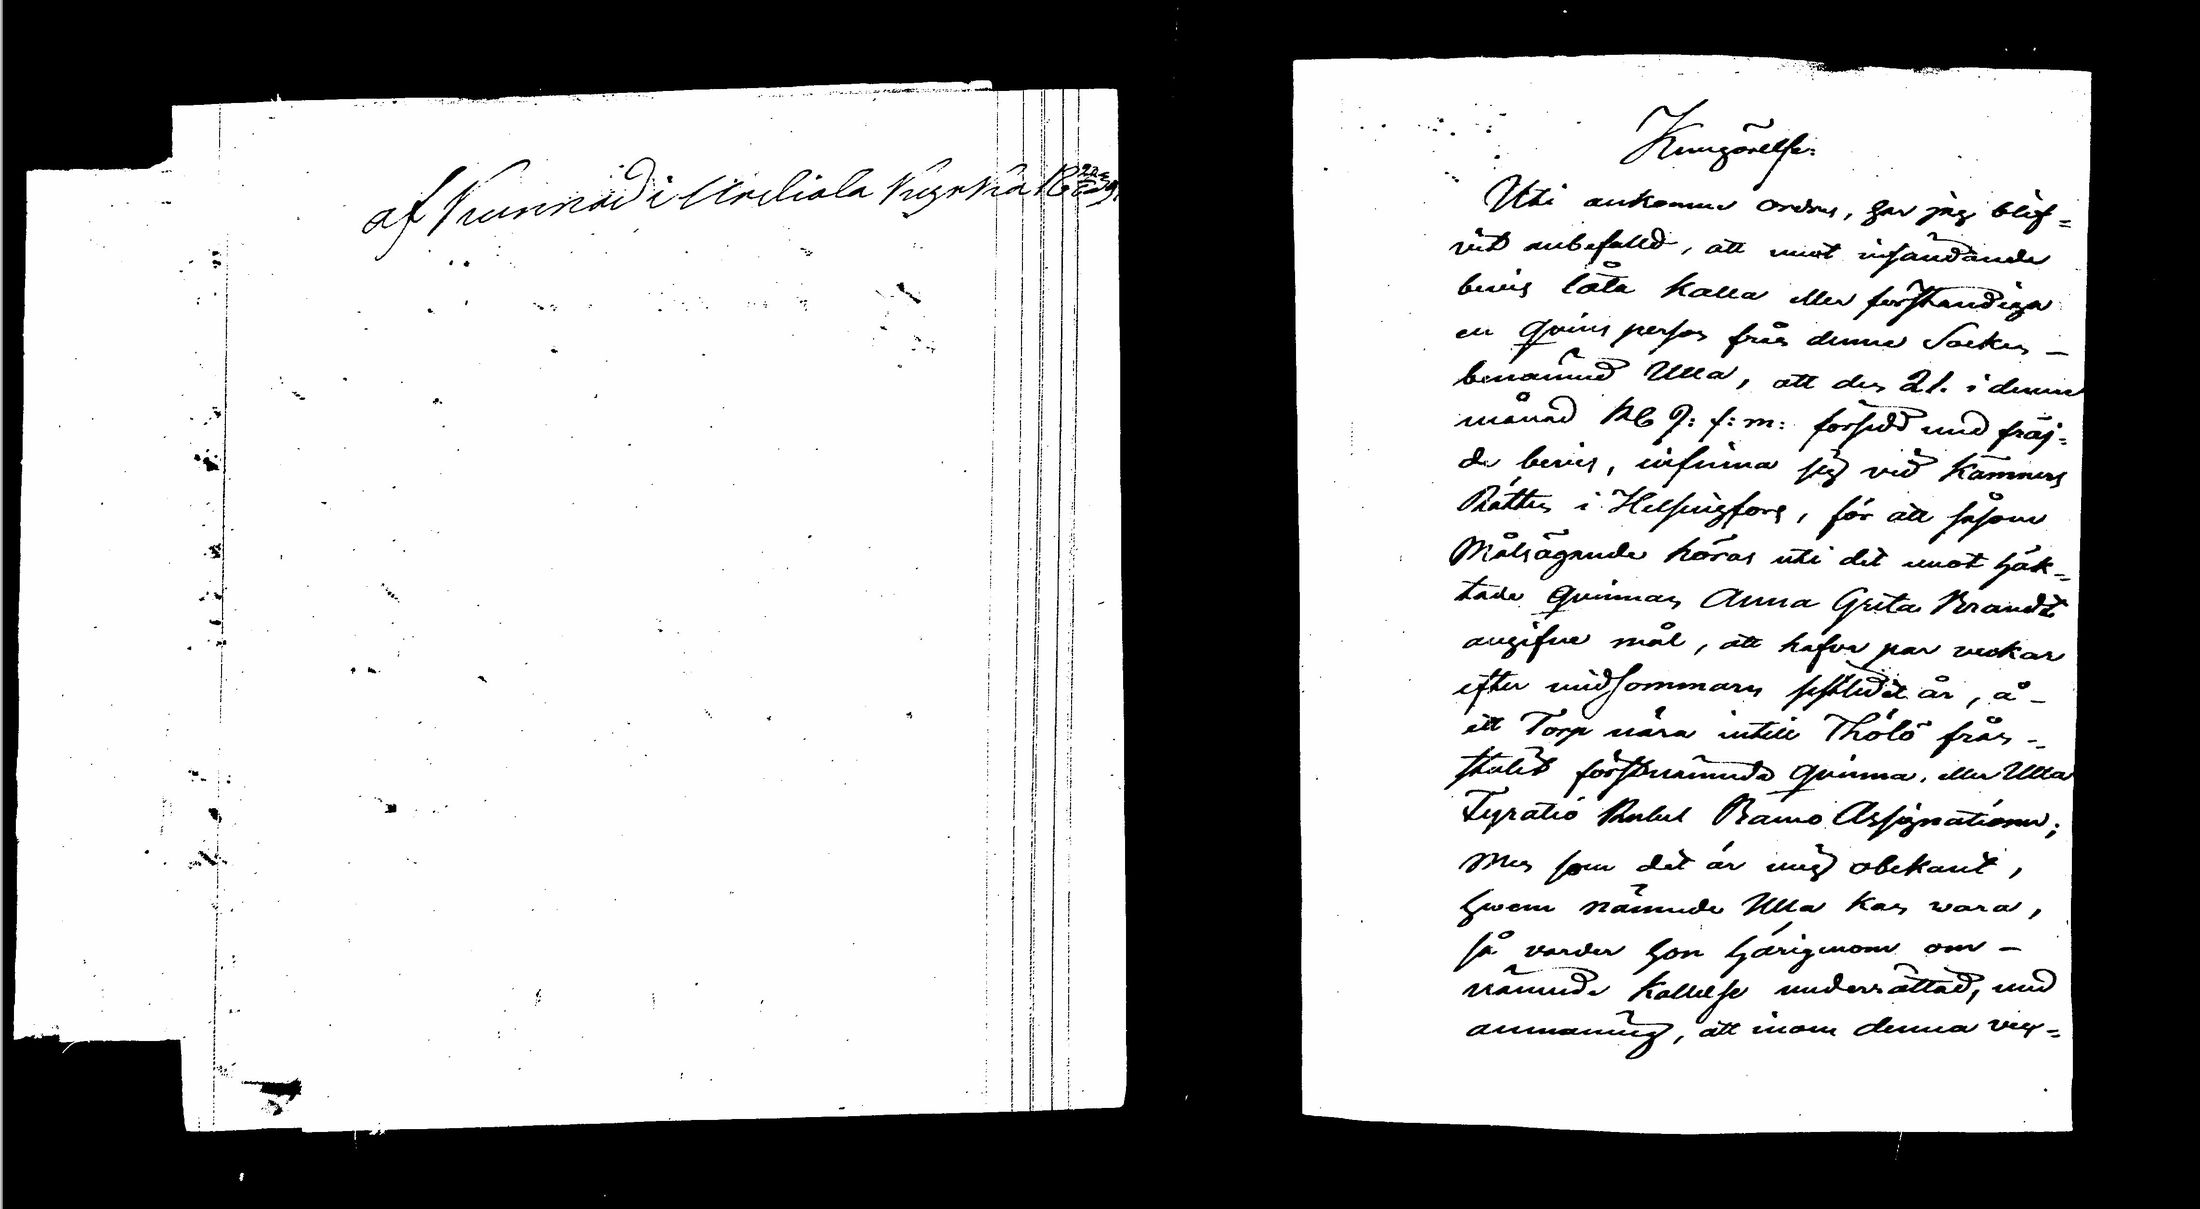 af kunnad i Urdiala kyrka
Kungörelse.
Uti ankomne ordres, har jag blif=
vit anbefalld, att mot insändande
bevis låta kalla eller förständiga
en qvins person från denne Socken –
benämnd Ulla, att den 21. i denne
månad Kl 9: f: m: försedd med fräj=
de bevis, infinna sig vid Kämners
Rätten i Helsingfors, för att såsom
Målsägande höras uti det emot häk=
tade qvinnan Anna Greta Brandt
angifne mål, att hafva par veckor
efter midsommaren sistledit år, å –
ett Torp nära intill Thölö från=
stulit förstnämnde qvinna, eller Ulla
Tyratiö Rubel Banco Assignationer;
men som det är mig obekant,
hwem nämnde Ulla kan wara,
så varder hon härigenom om –
nämnde kallelse underrättad, med
anmaning, att inom denna vec=